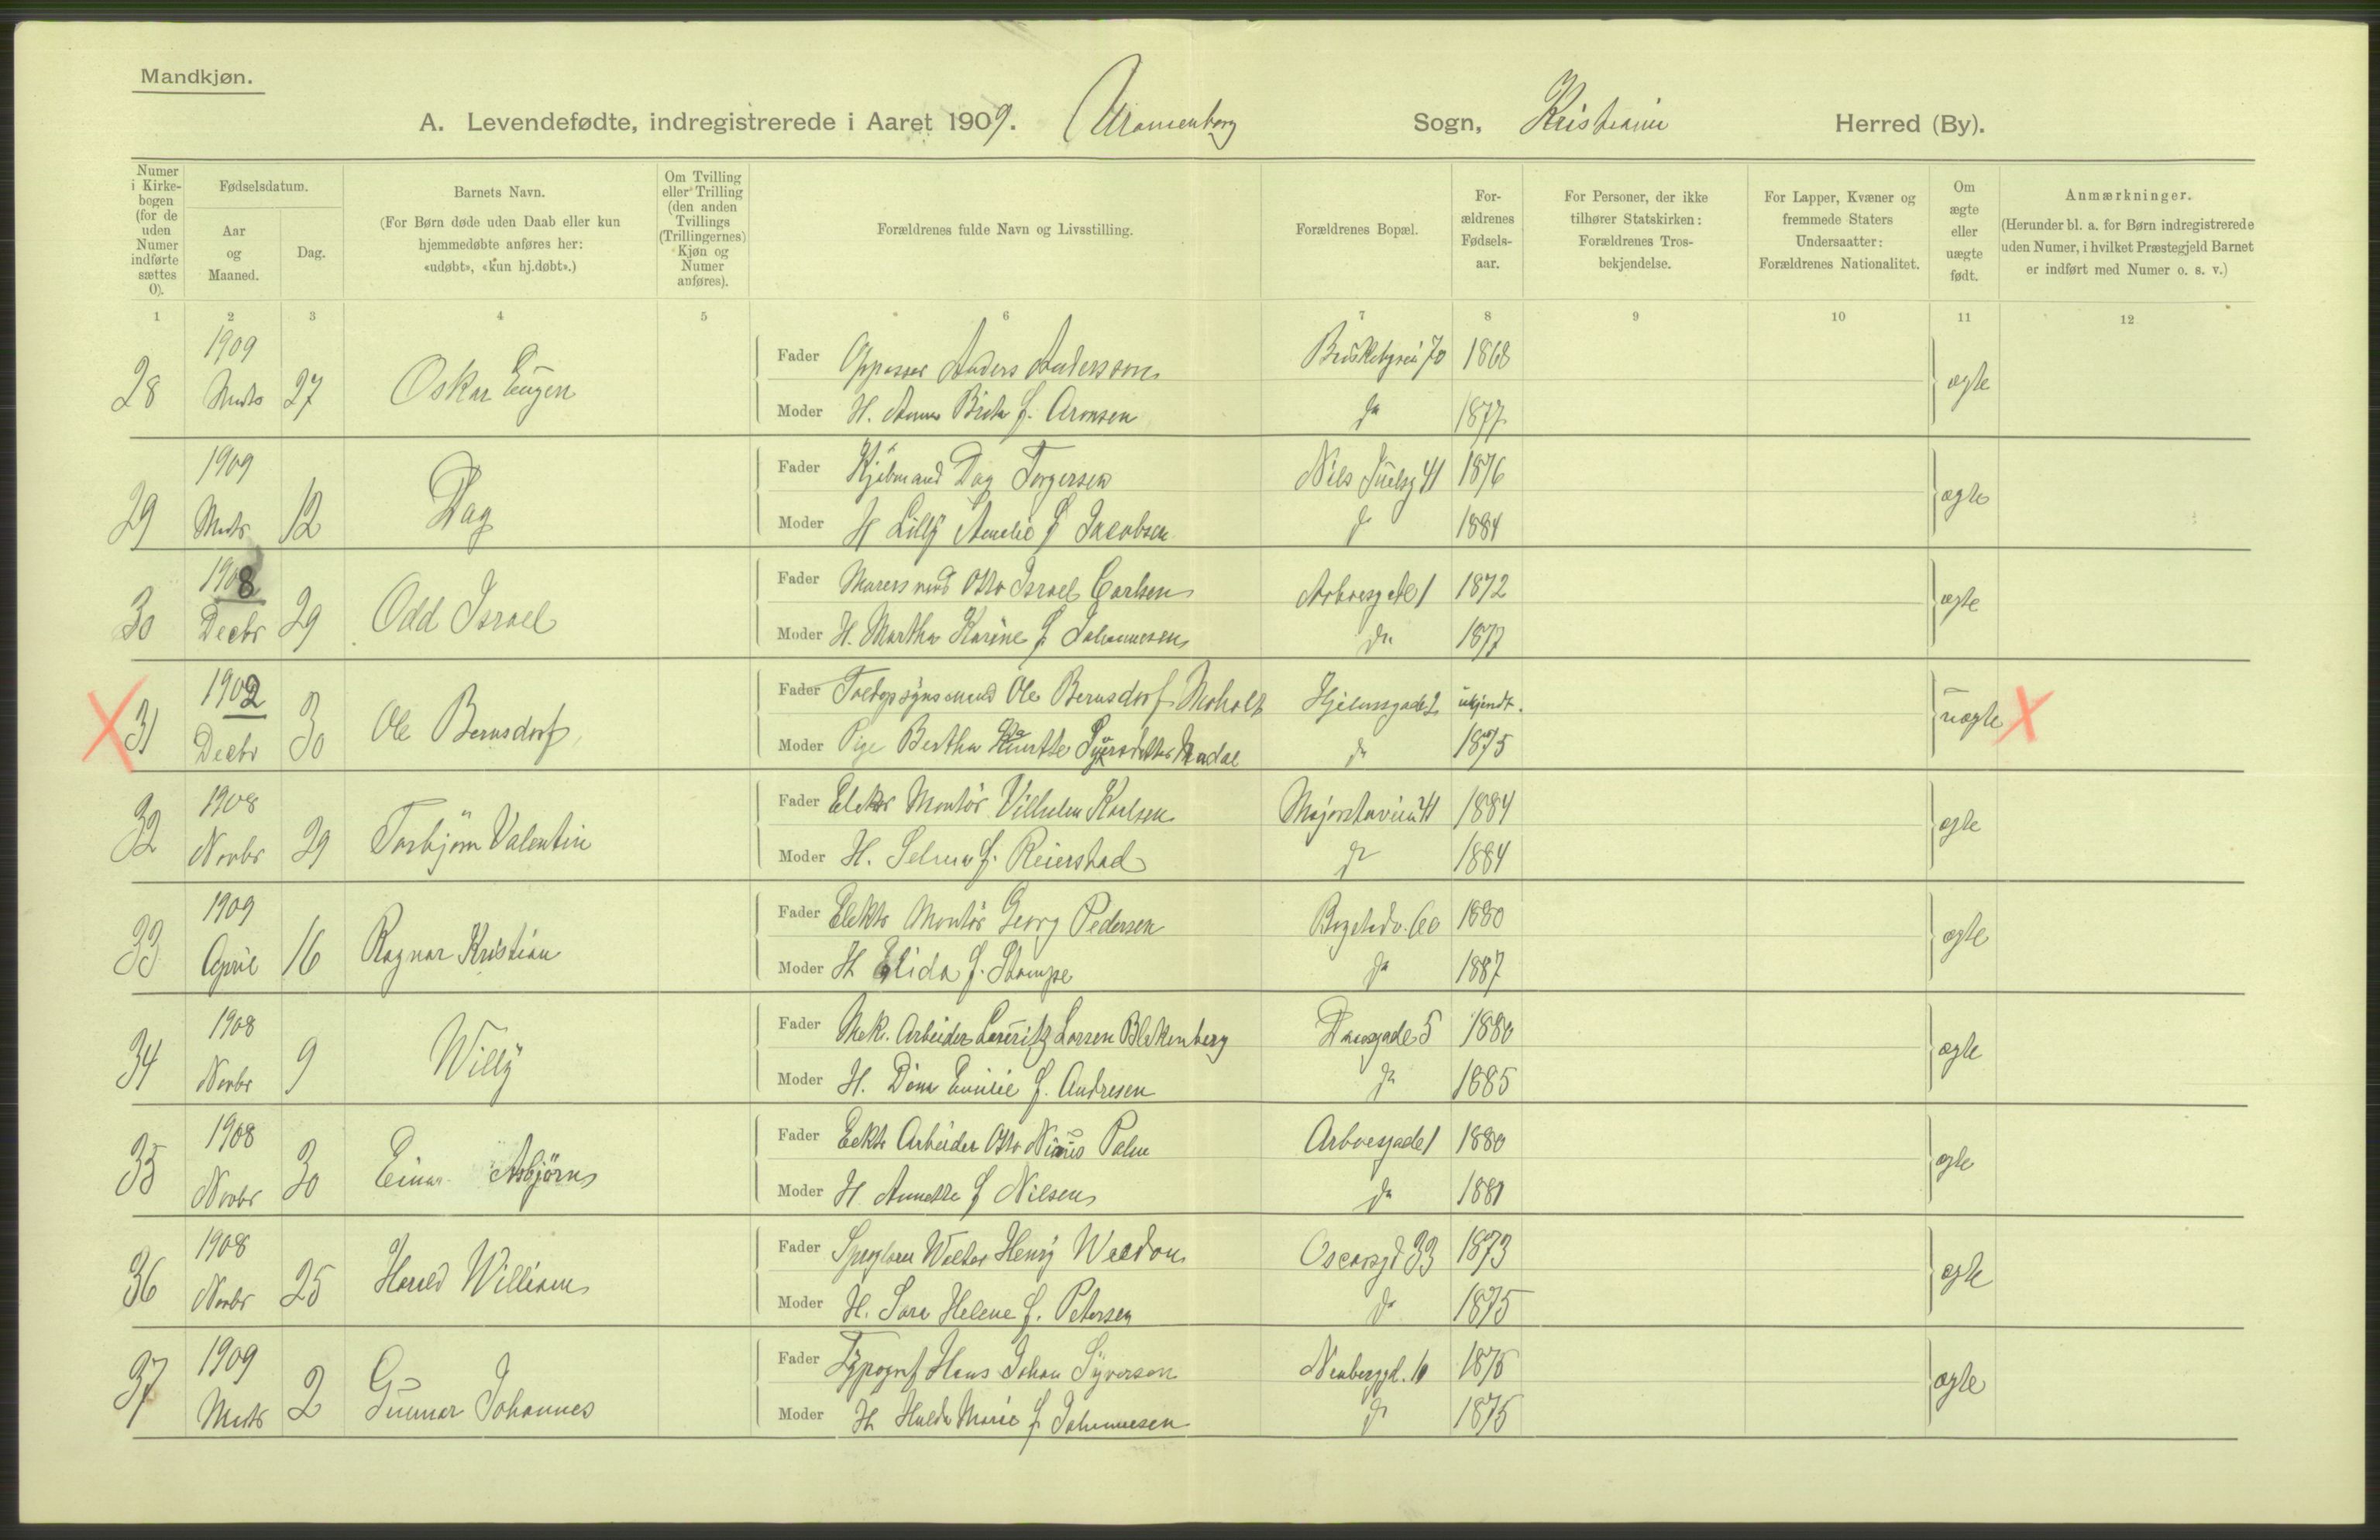 Mandkjøn.
A. Levendefødte, indregistrerede i Aaret 1909. Uranienborg Sogn, Kristiania Herred (By).
Numer i Kirkebogen (for de uden Numer indførte sættes 0).
Fødselsdatum.
Aar og Maaned.
Dag.
Barnets Navn.
(For Børn døde uden Daab eller kun hjemmedøbte anføres her: «udøbt», «kun hj.døbt».)
Om Tvilling eller Trilling (den anden Tvillings (Trillingernes) Kjøn og Numer anføres).
Forældrenes fulde Navn og Livsstilling.
Forældrenes Bopæl.
Forældrenes Fødselsaar.
For Personer, der ikke tilhører Statskirken: Forældrenes Trosbekjendelse.
For Lapper, Kvæner og fremmede Staters Undersaatter: Forældrenes Nationalitet.
Om ægte eller uægte født.
Anmærkninger.
(Herunder bl. a. for Børn indregistrerede uden Numer, i hvilket Præstegjeld Barnet er indført med Numer o. s. v.)
1 2 3 4 5 6 7 8 9 10 11 12
28 1909 Marts 27 Oskar Eugen
Fader Oppasser Anders Andersson Briskebyvei 70 1868 ægte
Moder H. Anna Brita f. Aronsen do 1877
29 1909 Marts 12 Dag
Fader Kjøbmand Dag Torgersen Niels Juelsg 41 1876 ægte
Moder H Lilly Amelie f Jacobsen do 1884
30 1908 Decbr 29 Odd Israel
Fader Otto Israel Carlsen Arboesgade 1 1872 ægte
Moder H. Martha Karine f. Johannesen do 1877
X 31 1902 Decbr 30 Ole Bernsdorf
Fader Toldopsynsmand Ole Bernsdorf Moholt Hjelmsgade 2 ukjendt. uægte X
Moder Pige Bertha do 1875
32 1908 Novbr 29 Torbjørn Valentin
Fader Elektr Montør Vilhelm Karlsen Majorstuvein 41 1884 ægte
Moder H. Selma f. Reierstad do 1884
33 1909 April 16 Ragnar Kristian
Fader Elektr Montør Georg Pedersen Bogstadv. 60 1880 ægte
Moder H Elida f. Stampe do 1887
34 1908 Novbr 9 Willy
Fader Mek. Arbeider Lauritz Larsen Blekenberg Daasgade 5 1880 ægte
Moder H. Dina Emilie f. Andresen do 1885
35 1908 Novbr 30 Einar Asbjørn
Fader Arbeider Otto Palm Arboesgade 1 1880 ægte
Moder H. Annette f Nilsen do 1881
36 1908 Novbr 25 Harald William
Fader Walter Henry Weedon Oscarsgd 33 1873 ægte
Moder H. Sara Helene f. Petersen do 1875
37 1909 Marts 2 Gunnar Johannes
Fader Typograf Hans Johan Syverson Neuberggd. 10 1875 ægte
Moder H Hulda Marie f Johannesen do 1875